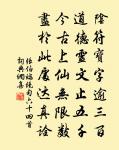 陰符寶字逾三百
道德靈文止五千
今古上仙無限數
盡於此處達真詮
張伯端絕句六十四首
詞典網集